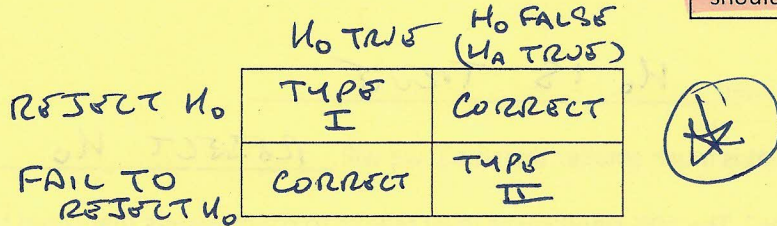 should
H₀ TRUE H₀ FALSE
(H_A TRUE)
REJECT H₀ TYPE I CORRECT
FAIL TO REJECT H₀ CORRECT TYPE II